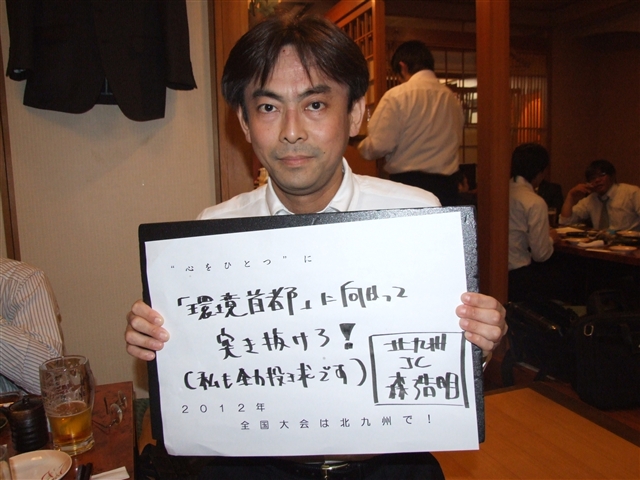 "心をひとつ"に
「環境首都」に向かって
突き抜けろ!
(私も全力投球です)
北九州
JC
森浩明
2012年
全国大会は北九州で!